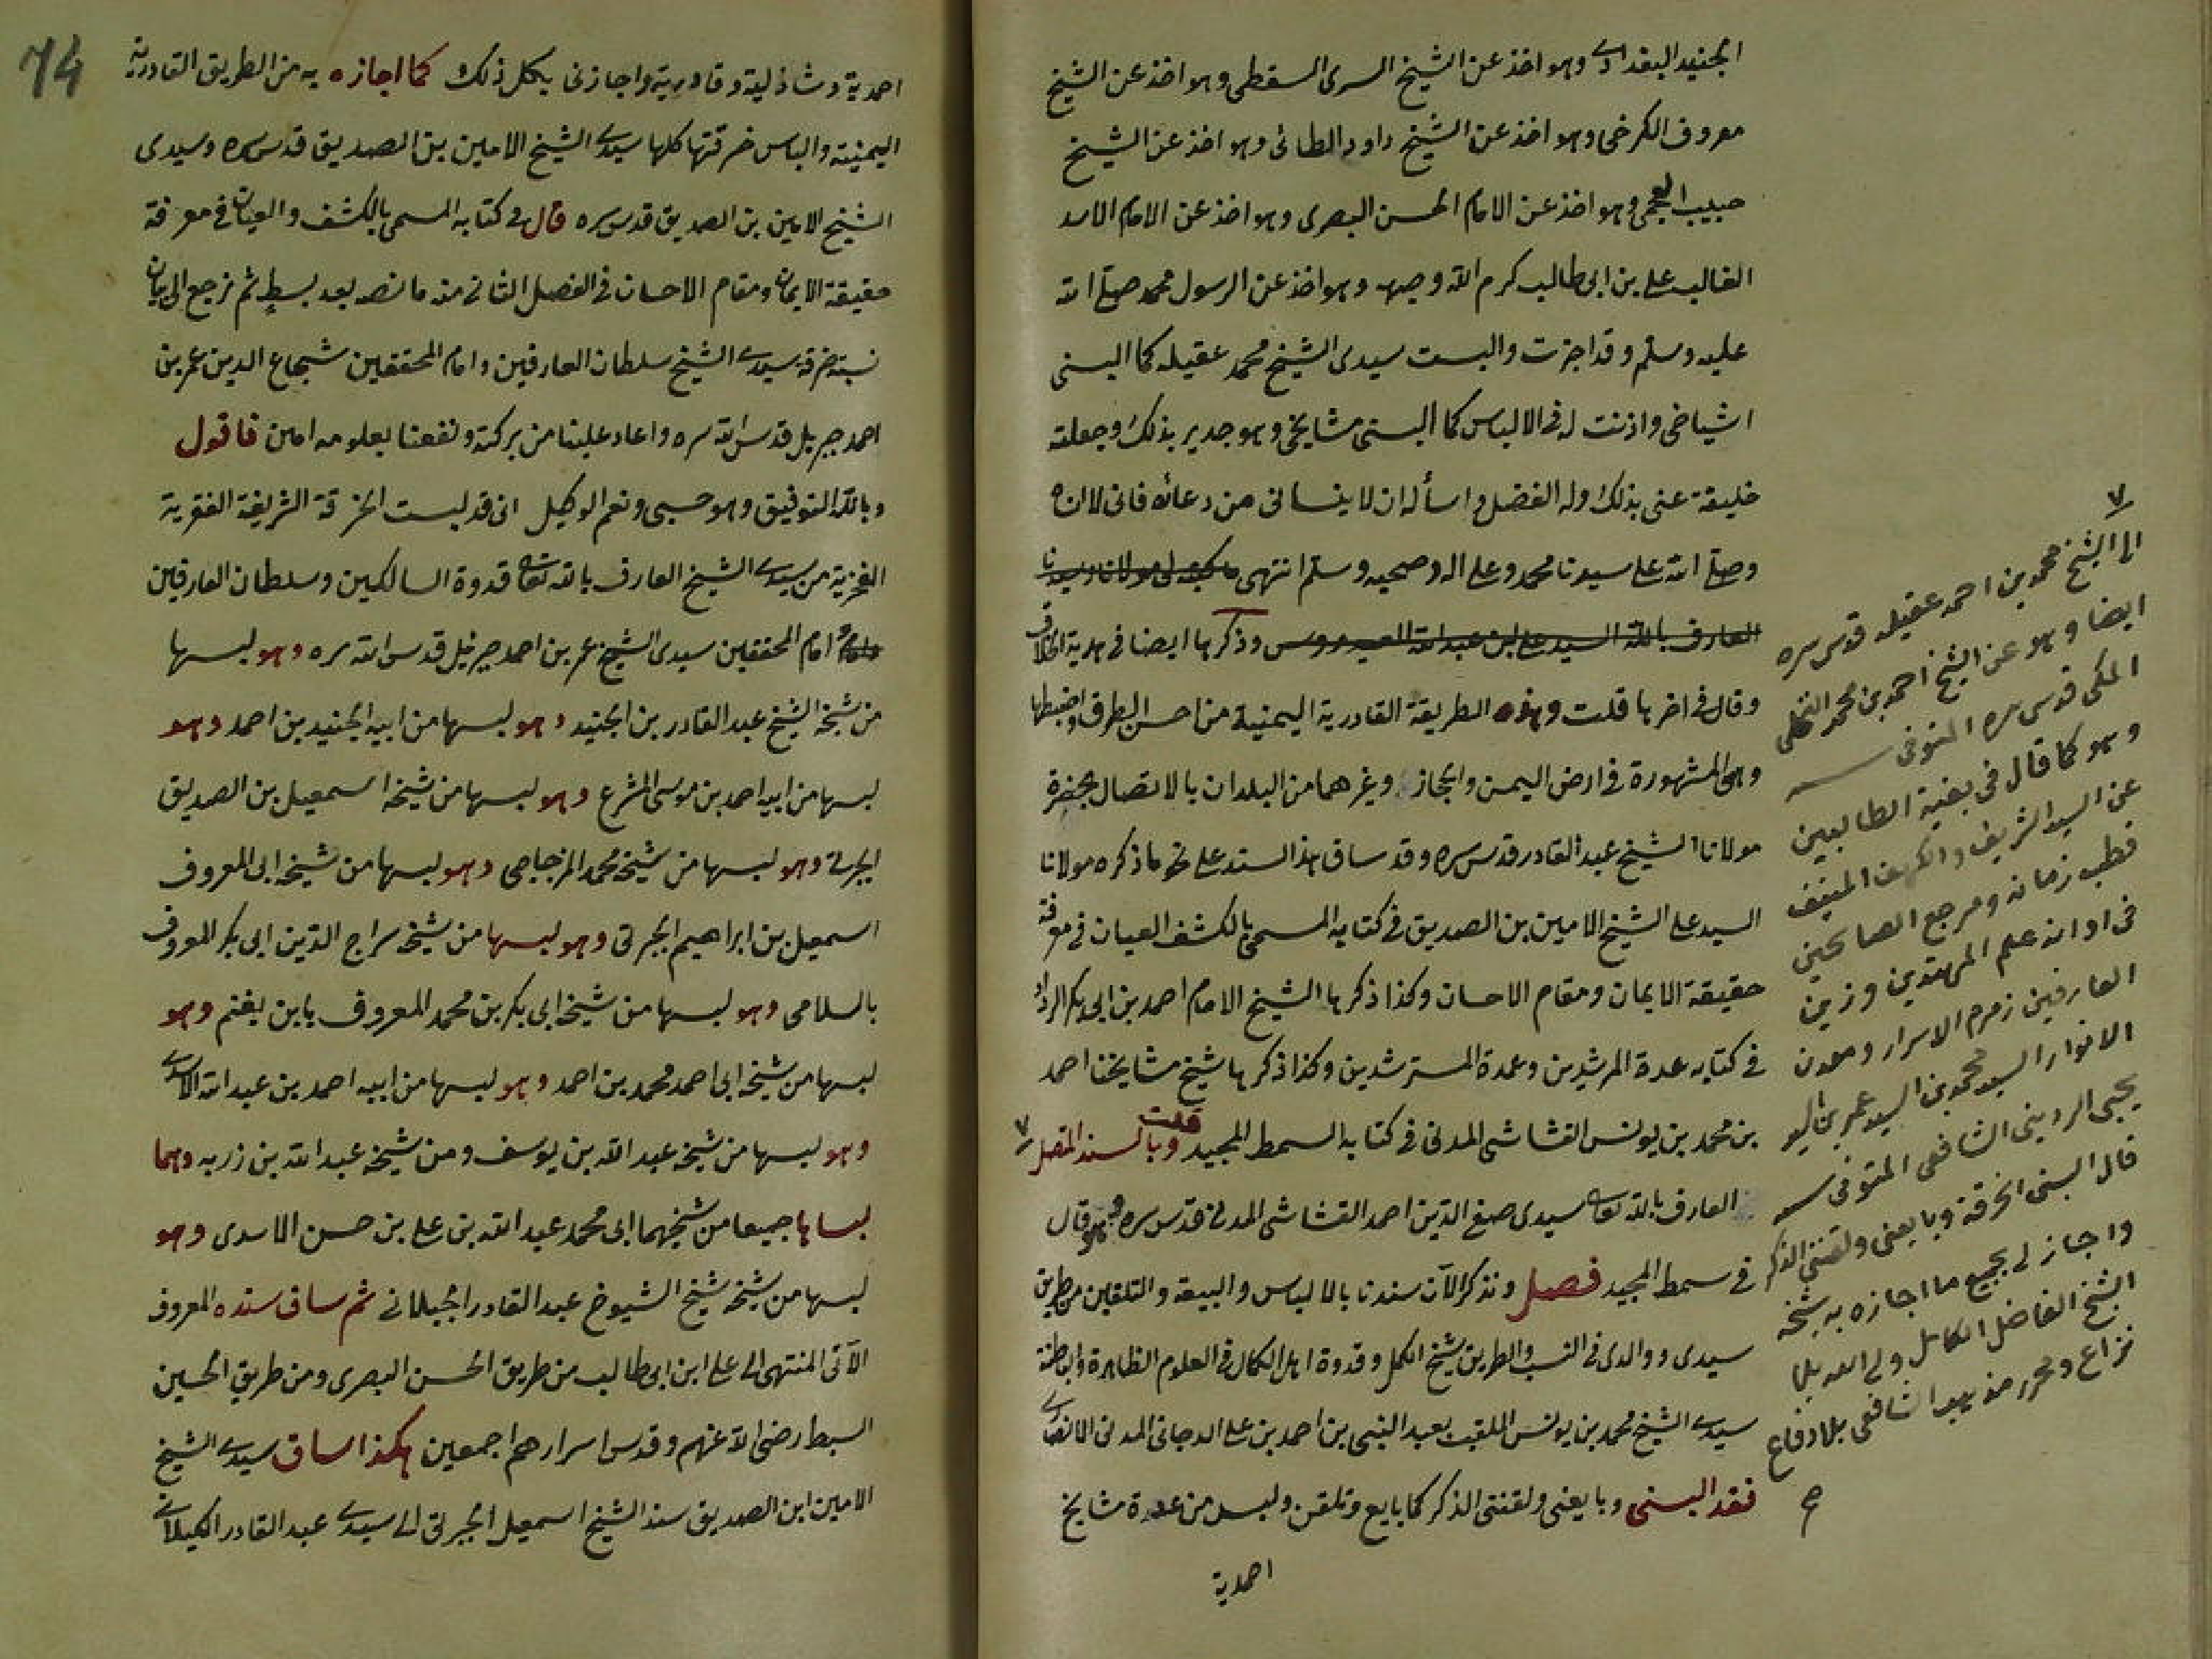 الجنيد البغدادي وهو اخذ عن الشيخ السري السقطي وهو اخذ عن الشيخ
معروف الكرخي وهو اخذ عن الشيخ داود الطائي وهو اخذ عن الشيخ
حبيب العجمي وهو اخذ عن الامام الحسن البصري وهو اخذ عن الامام الاسد
الغالب علي بن ابي طالب كرم الله وجهه وهو اخذ عن الرسول محمد صلى الله
عليه وسلم وقد اجزت والبست سيدي الشيخ محمد عقيله كما البسني
اشياخي واذنت له في الالباس كما البسني مشايخي وهو جدير بذلك وجعلته
خليفة عني بذلك وله الفضل واسأله ان لا ينساني من دعائه فاني لا
وصلى الله على سيدنا محمد وعلى اله وصحبه وسلم انتهى مولانا وسيدنا
العارف بالله السيد علي بن عبد الله العيدروس وذكرها ايضا في هدية
وقال في اخرها قلت وهذه الطريقة القادرية اليمنية من احسن الطرق واضبطها
وهي المشهورة في ارض اليمن والحجاز وغيرهما من البلدان بالاتصال بحضرة
مولانا الشيخ عبد القادر قدس سره وقد ساق هذا السند على نحو ما ذكره مولانا
السيد علي الشيخ الامين بن الصديق في كتابه المسمى بالكشف العيان في معرفة
حقيقة الايمان ومقام الاحسان وكذا ذكرها الشيخ الامام احمد بن ابي بكر الرداد
في كتابه عدة المرشدين وعمدة المسترشدين وكذا ذكرها شيخ مشايخنا احمد
بن محمد بن يونس القشاشي المدني في كتابه السمط المجيد قلت وبالسند المتصل
العارف بالله تعالى سيدي صفي الدين احمد القشاشي المدني قدس سره وهو قال
في سمط المجيد فصل ونذكر الآن سندنا بالالباس والبيعة والتلقين من طريق
سيدي ووالدي في النسب والطريق شيخ الكمل وقدوة اهل الكمال في العلوم الظاهرة والباطنة
سيدي الشيخ محمد بن يونس الملقب بعبد النبي بن احمد بن علي الدجاني المدني الانصاري
فقد البسني وبايعني ولقنني الذكر كما بايع وتلقن ولبس من عدة مشايخ
احمدية
الى الشيخ محمد بن احمد عقيله قدس سره
ايضا وهو عن الشيخ احمد بن محمد النخلي
المكي قدس سره المتوفى سنه
وهو كما قال في بغية الطالبين
عن السيد الشريف والكهف المنيف
قطب زمانه ومرجع الصالحين
في اوانه علم المهتدين وزين
العارفين زمزم الاسرار ومعدن
الانوار السيد محمد بن السيد عمر بن السيد
يحيى الرديني الشافعي المتوفى سنه
قال البسني الخرقة وبايعني ولقنني الذكر
واجاز لي بجميع ما اجازه به شيخه
الشيخ الفاضل الكامل ولي الله بلا
نزاع ومحرر مذهب الشافعي بلا دفاع
74
احمدية وشاذلية وقادرية واجازني بكل ذلك كما اجازه به من الطريق القادرية
اليمنية والباس خرقتها كلها سيدي الشيخ الامين بن الصديق قدس سره وسيدي
الشيخ الامين بن الصديق قدس سره قال في كتابه المسمى بالكشف والعيان في معرفة
حقيقة الايمان ومقام الاحسان في الفصل الثاني منه ما نصه بعد بسط ثم نرجع الى بيان
نسبة خرقة سيدي الشيخ سلطان العارفين وامام المحققين شجاع الدين عمر بن
احمد جبريل قدس الله سره واعاد علينا من بركته ونفعنا بعلومه امين فاقول
وبالله التوفيق وهو حسبي ونعم الوكيل اني قد لبست الخرقة الشريفة الفقرية
الفخرية من سيدي الشيخ العارف بالله تعالى قدوة السالكين وسلطان العارفين
وامام المحققين سيدي الشيخ عمر بن احمد جبرئيل قدس الله سره وهو لبسها
من شيخه الشيخ عبد القادر بن الجنيد وهو لبسها من ابيه الجنيد بن احمد وهو
لبسها من ابيه احمد بن موسى المشرع وهو لبسها من شيخه اسمعيل بن الصديق
الجبرتي وهو لبسها من شيخه محمد المزجاجي وهو لبسها من شيخه ابي المعروف
اسمعيل بن ابراهيم الجبرتي وهو لبسها من شيخه سراج الدين ابي بكر المعروف
بالسلامي وهو لبسها من شيخه ابي بكر بن محمد المعروف بابن يغنم وهو
لبسها من شيخه ابي احمد محمد بن احمد وهو لبسها من ابيه احمد بن عبد الله الاسدي
وهو لبسها من شيخه عبد الله بن يوسف ومن شيخه عبد الله بن زربه وهما
لبساها جميعا من شيخهما ابي محمد عبد الله بن علي بن حسن الاسدي وهو
لبسها من شيخه شيخ الشيوخ عبد القادر الجيلاني ثم ساق سنده المعروف
الآتي المنتهي الى علي ابن ابي طالب من طريق الحسن البصري ومن طريق الحسين
السبط رضي الله عنهم وقدس اسرارهم اجمعين هكذا ساق سيدي الشيخ
الامين ابن الصديق سند الشيخ اسمعيل الجبرتي الى سيدي عبد القادر الكيلاني